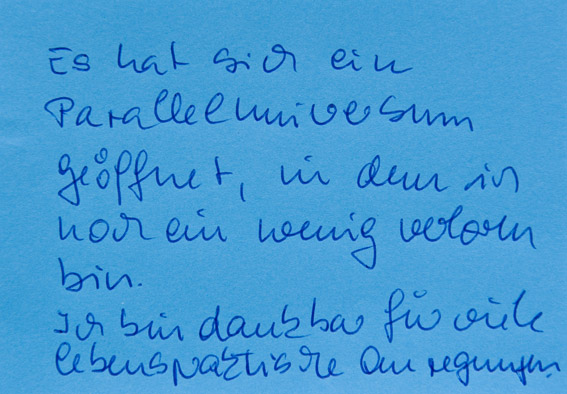 Es hat sich ein
Paralleluniversum
geöffnet, in dem ich
noch ein wenig verloren
bin.
Ich bin dankbar für viele
lebenspraktische Anregungen.